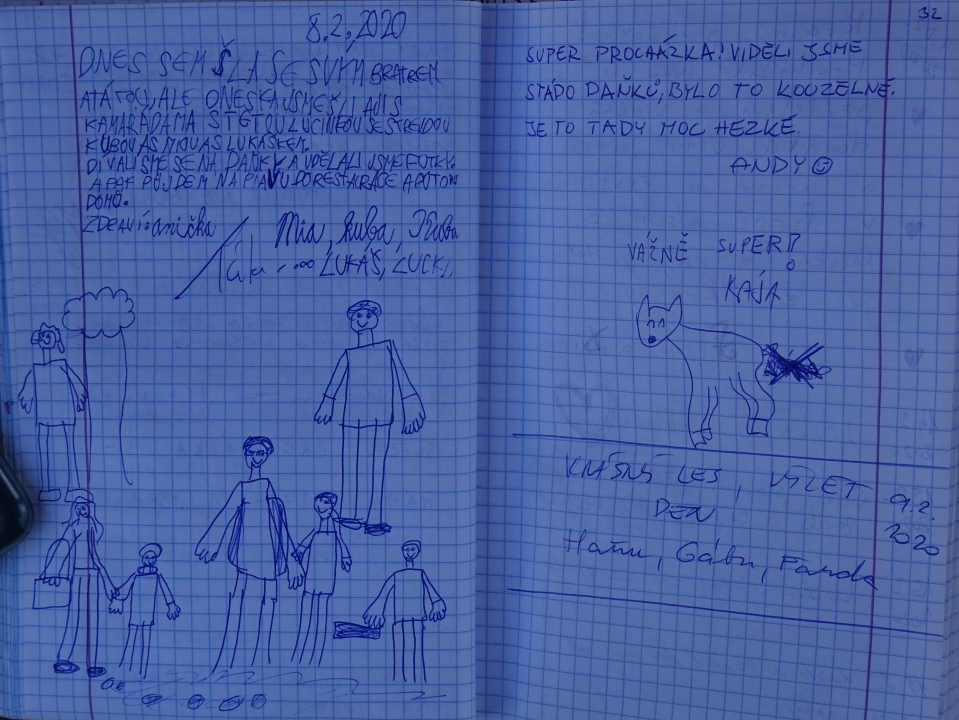 8.2.2020
DNES SEM ŠLA SE SVÝM BRATREM
A TÁTOU, ALE DNESKA JSME ŠLI AJ S
KAMARÁDAMA S TETOU LUCINKOU SE STREJDOU
KUBOU A S MIOU A S LUKÁŠKEM.
DÍVALI SME SE NA DAŇKY A UDĚLALI JSME FOTKY.
A PAK PŮJDEM NA PIAVU DO RESTAURACE A POTOM
DOMŮ.
ZDRAVÍ: anička
Mia, kuba,
LUKÁŠ, LUCK
32
SUPER PROCHÁZKA! VIDĚLI JSME
STÁDO DAŇKŮ, BYLO TO KOUZELNÉ.
JE TO TADY MOC HEZKÉ.
ANDY ☺
VÁŽNĚ SUPER!
KAJA
KRÁSNÝ LES, VÝLET 9.2.
DEN 2020
Gábu, Fanda